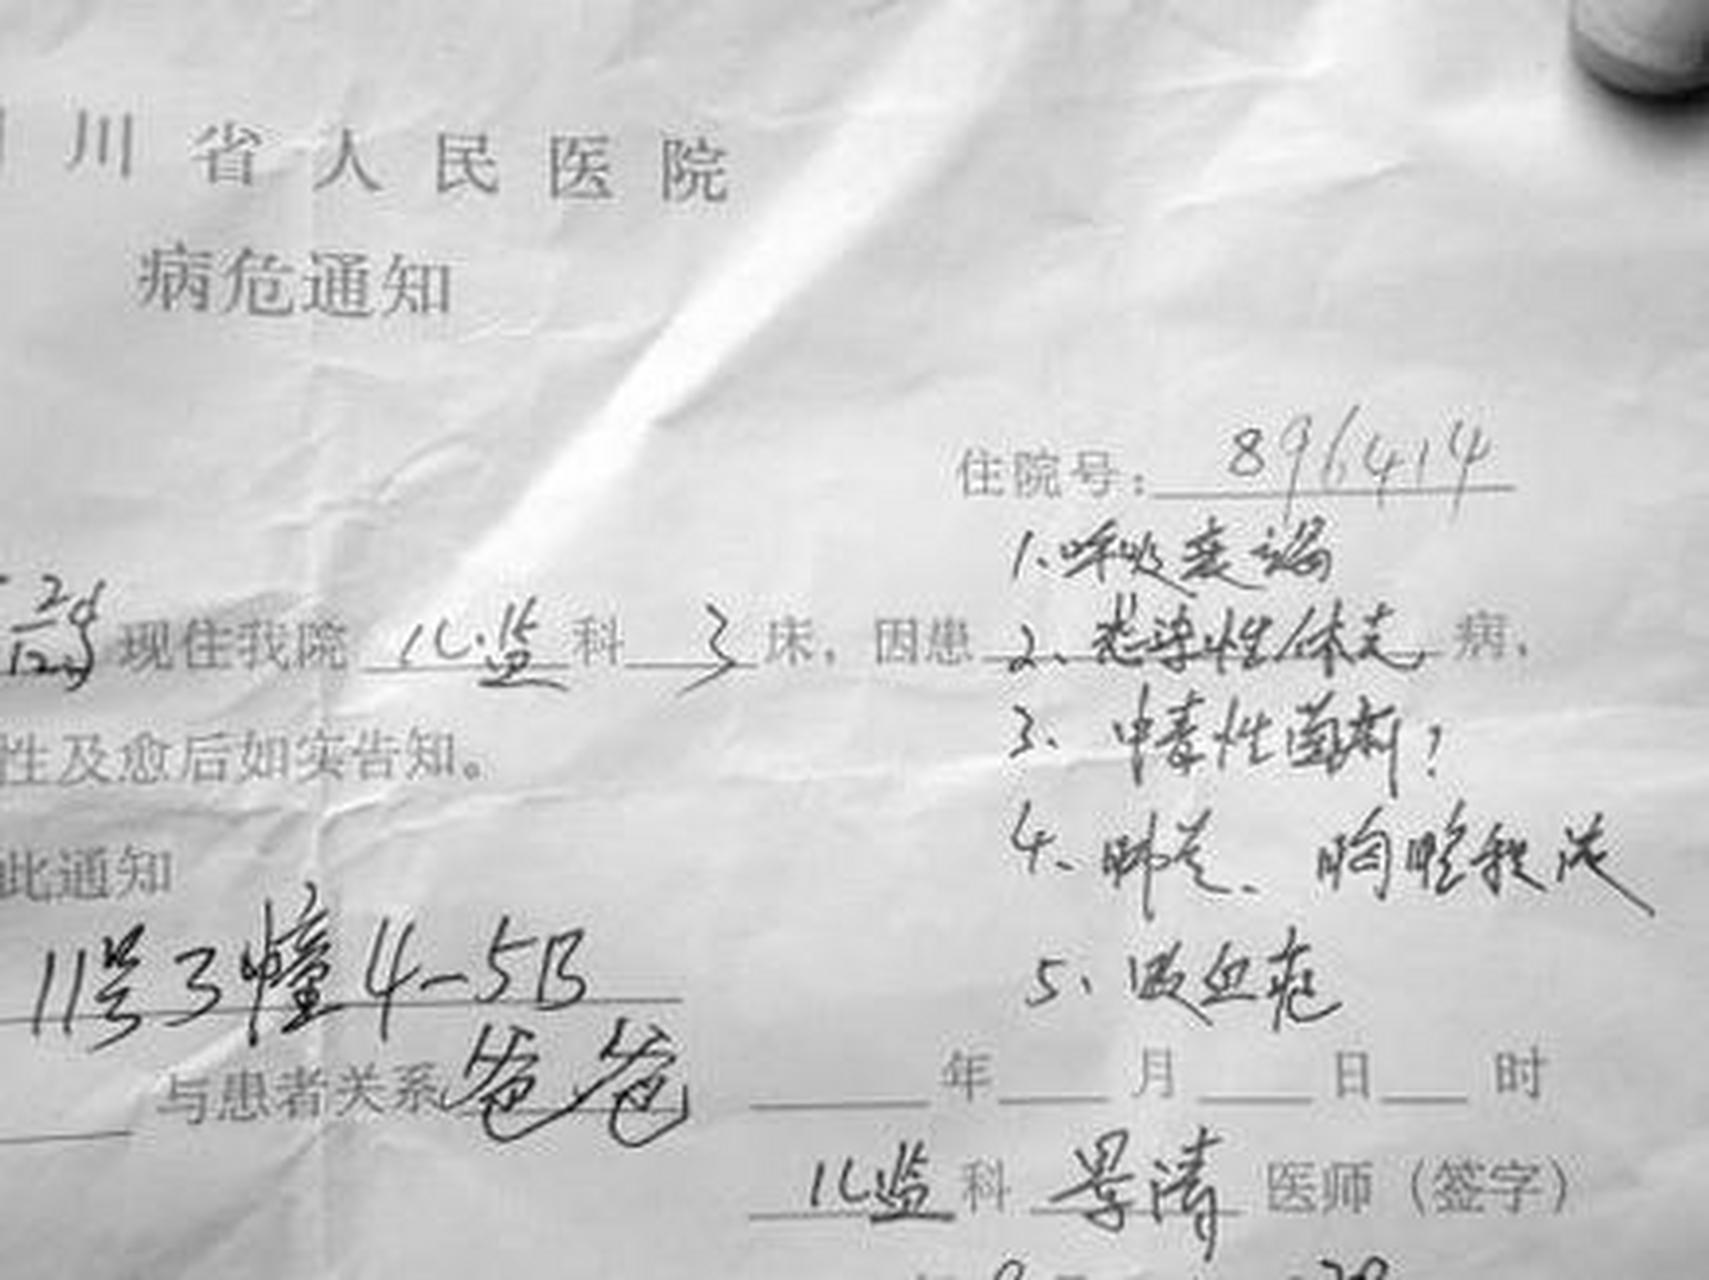 川省人民医院
病危通知
住院号：891414
1、呼吸衰竭
现住我院儿监科3床，因患2、感染性休克病，
3、中毒性菌痢？
性及愈后如实告知。
4、肺炎、胸腔积液
此通知
5、败血症
11号3幢4-5B
与患者关系爸爸
年 月 日 时
儿监科 医师（签字）